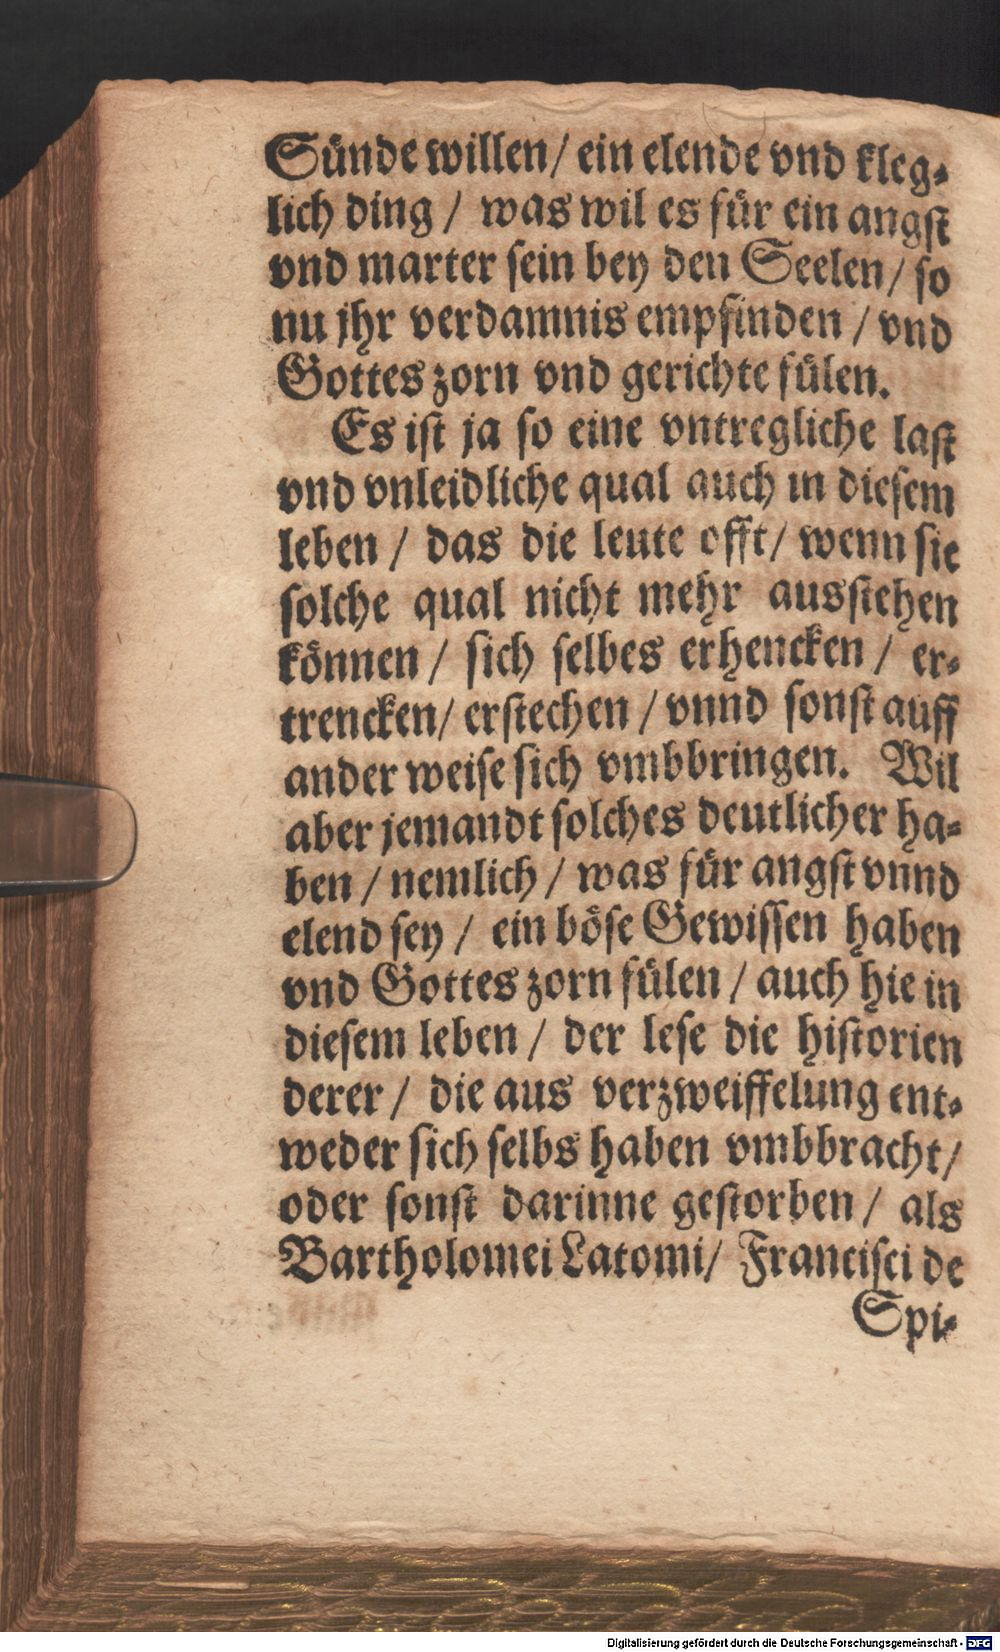 Sünde willen/ ein elende vnd kleg⸗
lich ding / was wil es für ein angst
vnd marter sein bey den Seelen/ so
nu jhr verdamnis empfinden / vnd
Gottes zorn vnd gerichte fülen.
Es ist ja so eine vntregliche last
vnd vnleidliche qual auch in diesem
leben / das die leute offt/ wenn sie
solche qual nicht mehr ausstehen
können / sich selbes erhencken / er⸗
trencken/ erstechen / vnnd sonst auff
ander weise sich vmbbringen. Wil
aber jemandt solches deutlicher ha⸗
ben / nemlich / was für angst vnnd
elend sey / ein böse Gewissen haben
vnd Gottes zorn fülen / auch hie in
diesem leben / der lese die historien
derer / die aus verzweiffelung ent⸗
weder sich selbs haben vmbbracht/
oder sonst darinne gestorben / als
Bartholomei Latomi/ Francisci de
Spi⸗
Digitalisierung gefördert durch die Deutsche Forschungsgemeinschaft - DFG